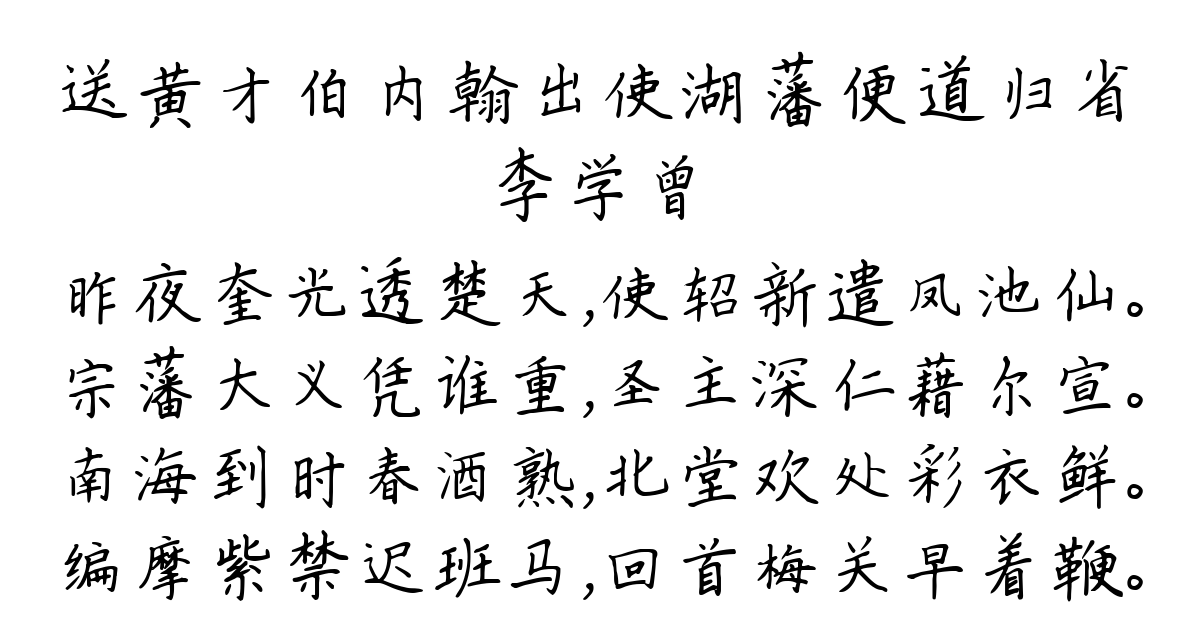 送黄才伯内翰出使湖藩便道归省
李学曾
昨夜奎光透楚天,使轺新遣凤池仙。
宗藩大义凭谁重,圣主深仁藉尔宣。
南海到时春酒熟,北堂欢处彩衣鲜。
编摩紫禁迟班马,回首梅关早着鞭。